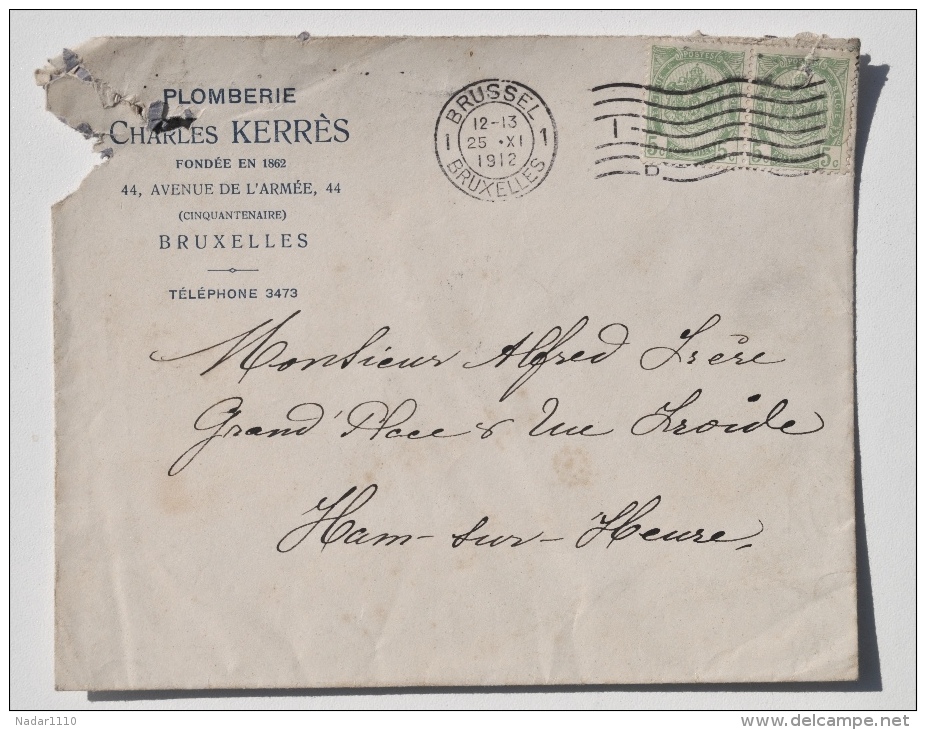 PLOMBERIE
CHARLES KERRÈS
FONDÉE EN 1862
44, AVENUE DE L'ARMÉE, 44
(CINQUANTENAIRE)
BRUXELLES
TÉLÉPHONE 3473
BRUSSEL
1 12-13 1
25 · XI
1912
BRUXELLES
I
D
POSTES
5c 5c 5c 5c
Monsieur Alfred Frère
Grand'Place & Rue Froide
Ham-sur-Heure.
Nadar1110
delcampe.net